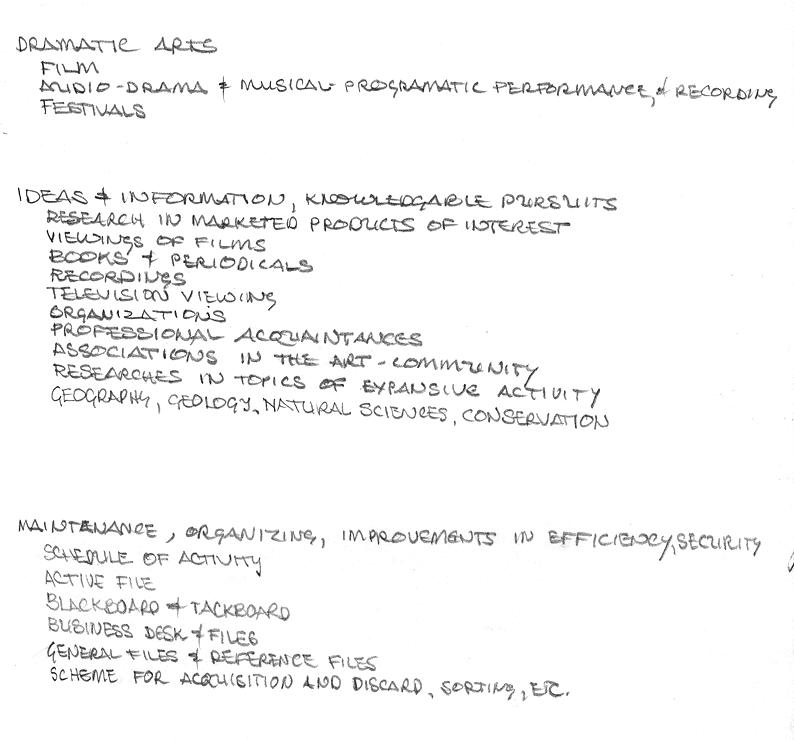 DRAMATIC ARTS
FILM
AUDIO-DRAMA & MUSICAL-PROGRAMATIC PERFORMANCE, & RECORDING
FESTIVALS
IDEAS & INFORMATION, KNOWLEDGABLE PURSUITS
RESEARCH IN MARKETED PRODUCTS OF INTEREST
VIEWINGS OF FILMS
BOOKS & PERIODICALS
RECORDINGS
TELEVISION VIEWING
ORGANIZATIONS
PROFESSIONAL ACQUAINTANCES
ASSOCIATIONS IN THE ART-COMMUNITY
RESEARCHES IN TOPICS OF EXPANSIVE ACTIVITY
GEOGRAPHY, GEOLOGY, NATURAL SCIENCES, CONSERVATION
MAINTENANCE, ORGANIZING, IMPROVEMENTS IN EFFICIENCY, SECURITY
SCHEDULE OF ACTIVITY
ACTIVE FILE
BLACKBOARD & TACKBOARD
BUSINESS DESK & FILES
GENERAL FILES & REFERENCE FILES
SCHEME FOR ACQUISITION AND DISCARD, SORTING, ETC.